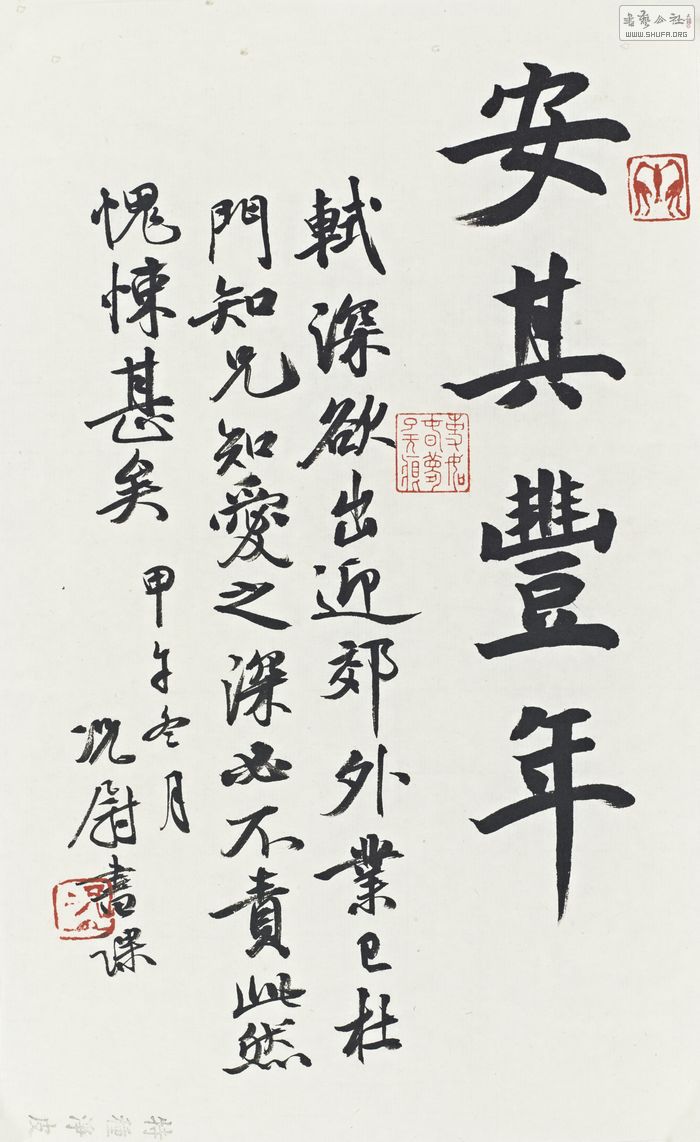 安其豐年
軾深欲出迎郊外業已杜
門知兄知愛之深必不責此然
愧悚甚矣
甲午冬月
况尉書課
事如
春夢
了無痕
書藝公社
WWW.SHUFA.ORG
特種淨皮